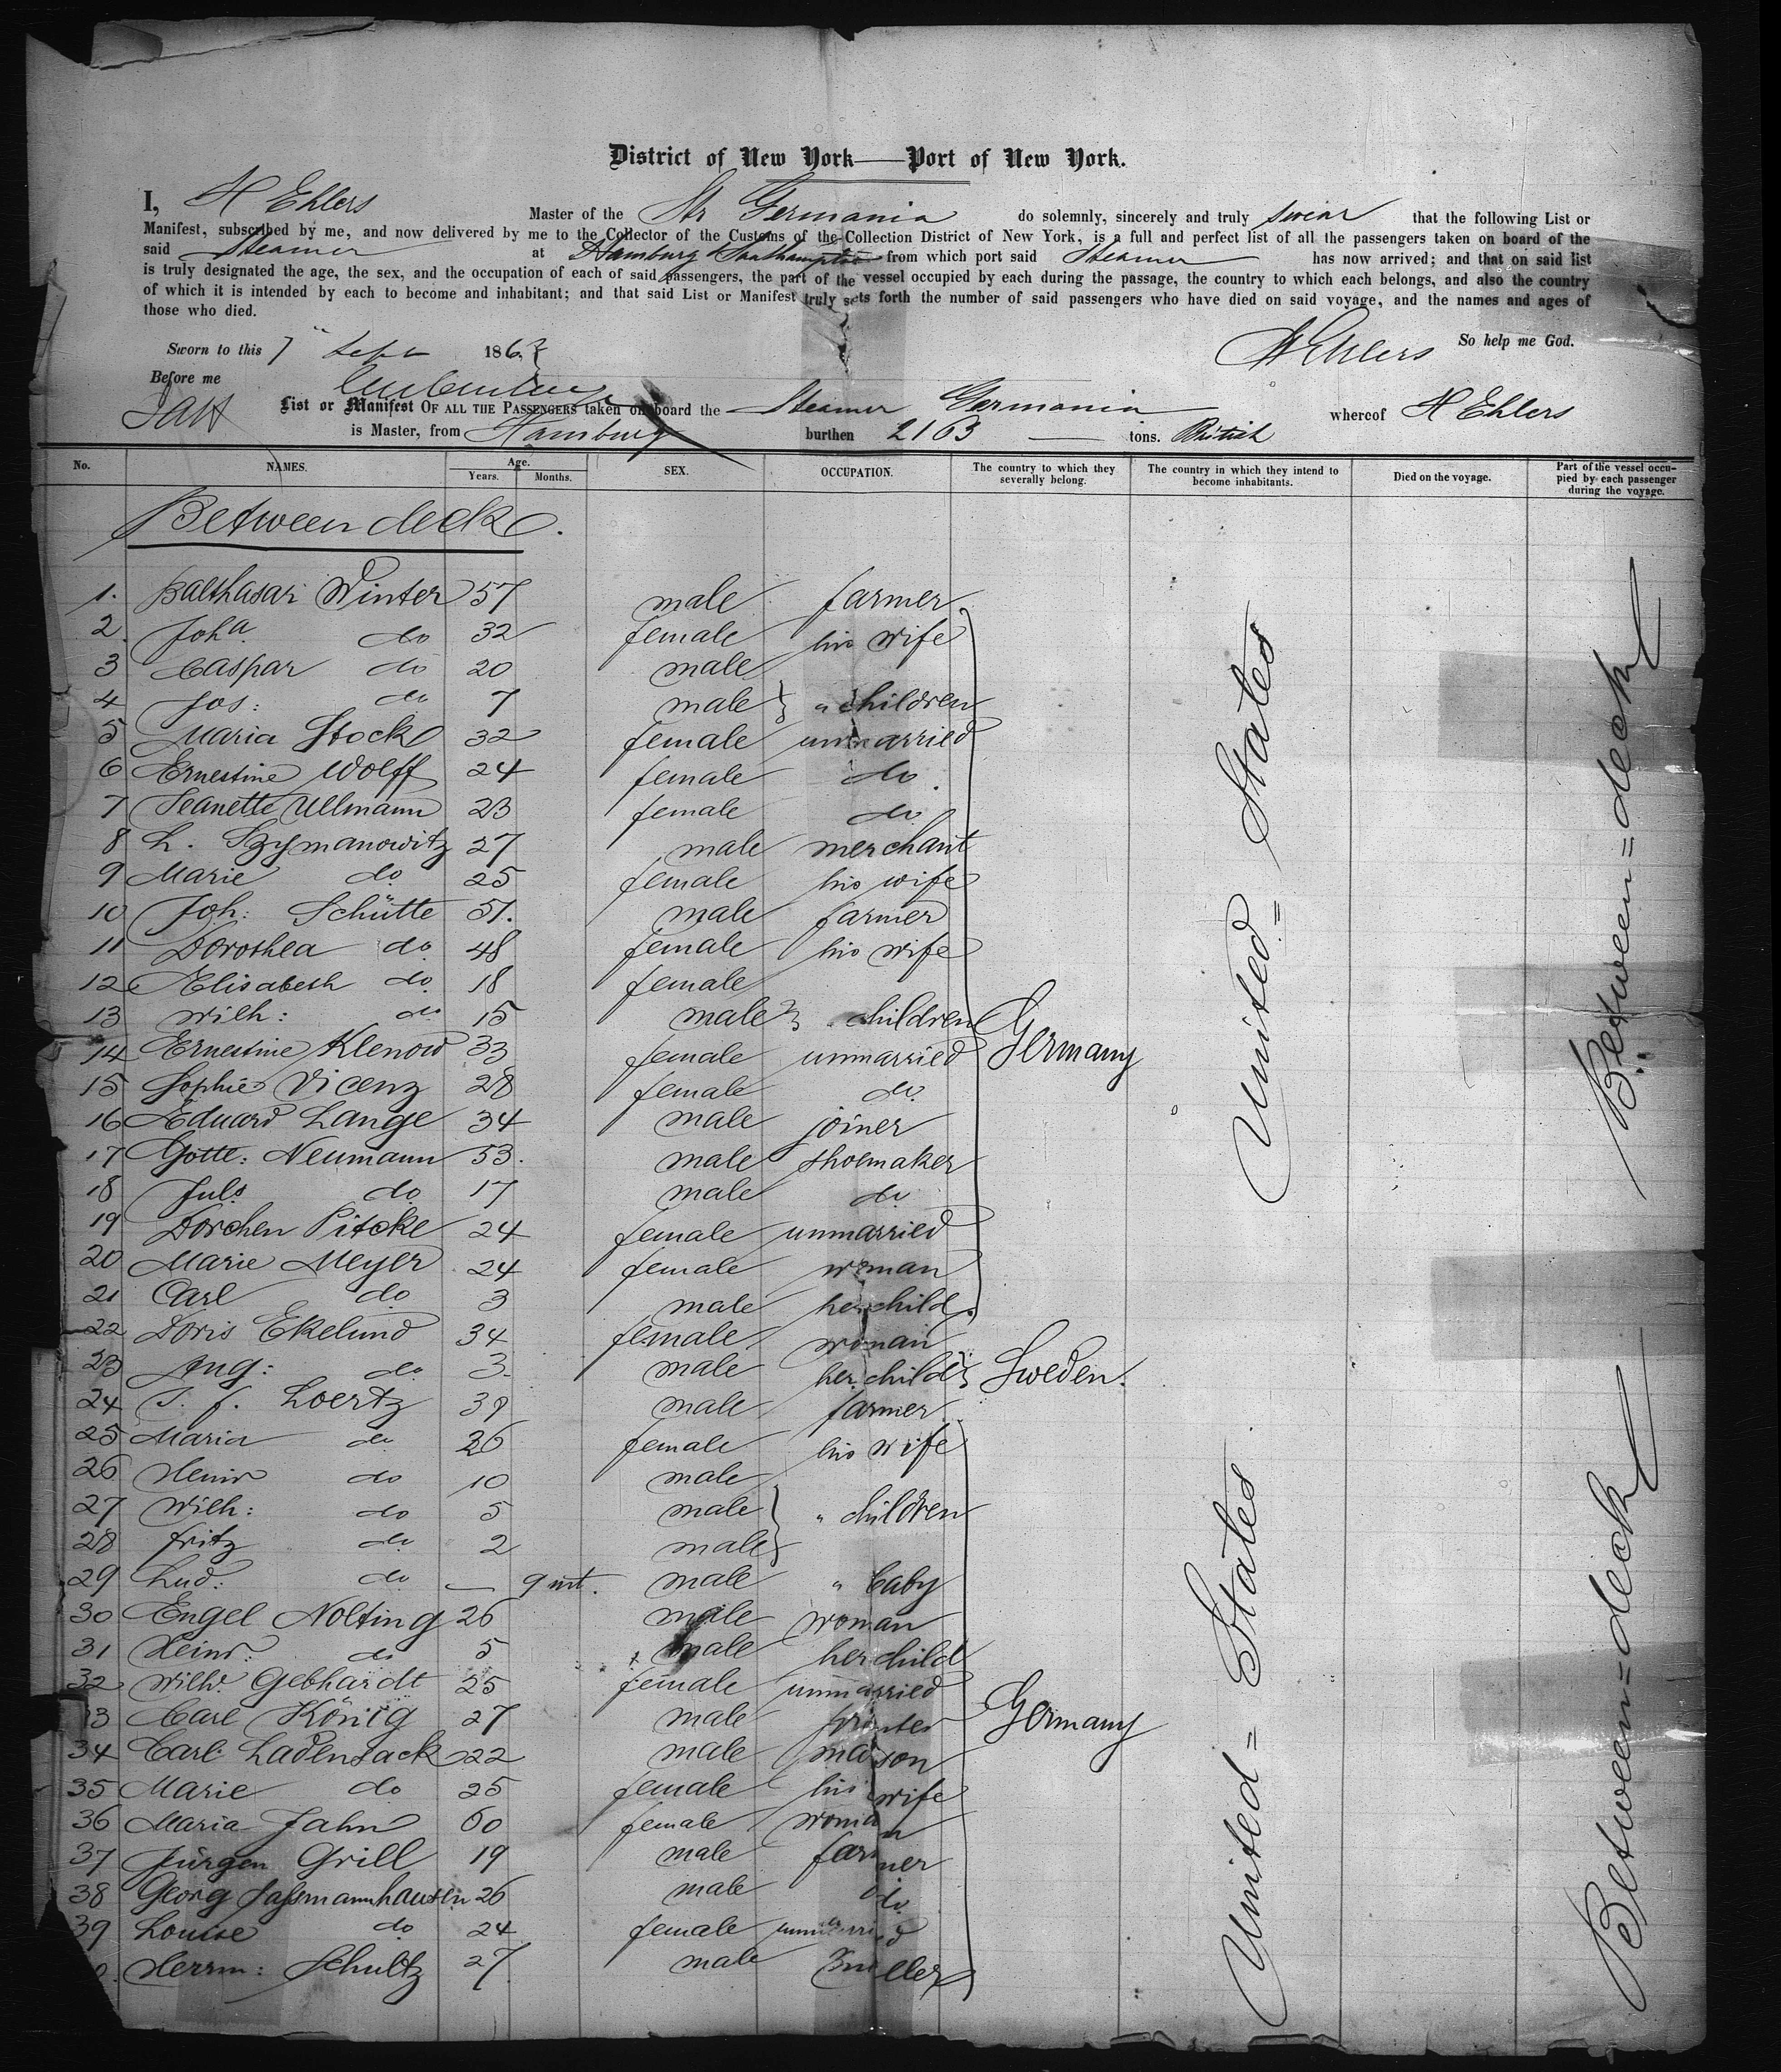 District of New York — Port of New York.
I, H Ehlers Master of the Str Germania do solemnly, sincerely and truly swear that the following List or
Manifest, subscribed by me, and now delivered by me to the Collector of the Customs of the Collection District of New York, is a full and perfect list of all the passengers taken on board of the
said Steamer at Hamburg & Southampton from which port said Steamer has now arrived; and that on said list
is truly designated the age, the sex, and the occupation of each of said passengers, the part of the vessel occupied by each during the passage, the country to which each belongs, and also the country
of which it is intended by each to become and inhabitant; and that said List or Manifest truly sets forth the number of said passengers who have died on said voyage, and the names and ages of
those who died.
So help me God.
Sworn to this 7" Sept 1863 H Ehlers
Before me
List or Manifest OF ALL THE PASSENGERS taken on board the Steamer Germania whereof H Ehlers
is Master, from Hamburg burthen 2163 tons. British
No. NAMES. Age. Years. Months. SEX. OCCUPATION. The country to which they severally belong. The country in which they intend to become inhabitants. Died on the voyage. Part of the vessel occupied by each passenger during the voyage.
Between deck.
1. Balthasar Winter 57 male farmer
2. Joha do 32 female his wife
3 Caspar do 20 male
4 Jos: do 7 male } " children
5 Maria Stock 32 female unmarried
6 Ernestine Wolff 24 female do
7 Jeanette Ullmann 23 female do
8 L. Szymanowitz 27 male merchant
9 Marie do 25 female his wife
10 Joh: Schütte 51. male farmer
11 Dorothea do 48 female his wife
12 Elisabeth do 18 female
13 Wilh: do 15 male } " children
14 Ernestine Klenow 33 female unmarried Germany
15 Sophie Vicenz 28 female do.
16 Eduard Lange 34 male joiner
17 Gottl: Neumann 53. male shoemaker
18 Juls do 17 male do
19 Dorchen Pitcke 24 female unmarried
20 Marie Meyer 24 female woman
21 Carl do 3 male her child.
22 Doris Ekelund 34 female woman
23 Aug: do 3 male her child } Sweden.
24 J. f. Loertz 39 male farmer
25 Maria do 36 female his wife
26 Heinr do 10 male
27 Wilh: do 5 male } " children
28 Fritz do 2 male
29 Lud: do — 9 mt. male " baby
30 Engel Nolting 26 male woman
31 Heinr: do 5 male her child
32 Wilhe Gebhardt 25 female unmarried
33 Carl König 27 male printer Germany
34 Carl Ladensack 22 male mason
35 Marie do 25 female his wife
36 Maria Jahn 60 female woman
37 Jürgen Grill 19 male farmer
38 Georg Fassmannhausen 26 male do.
39 Louise do 24 female unmarried
Herrm: Schultz 27 male miller
United = States
United = States
Between = deck
Between = deck